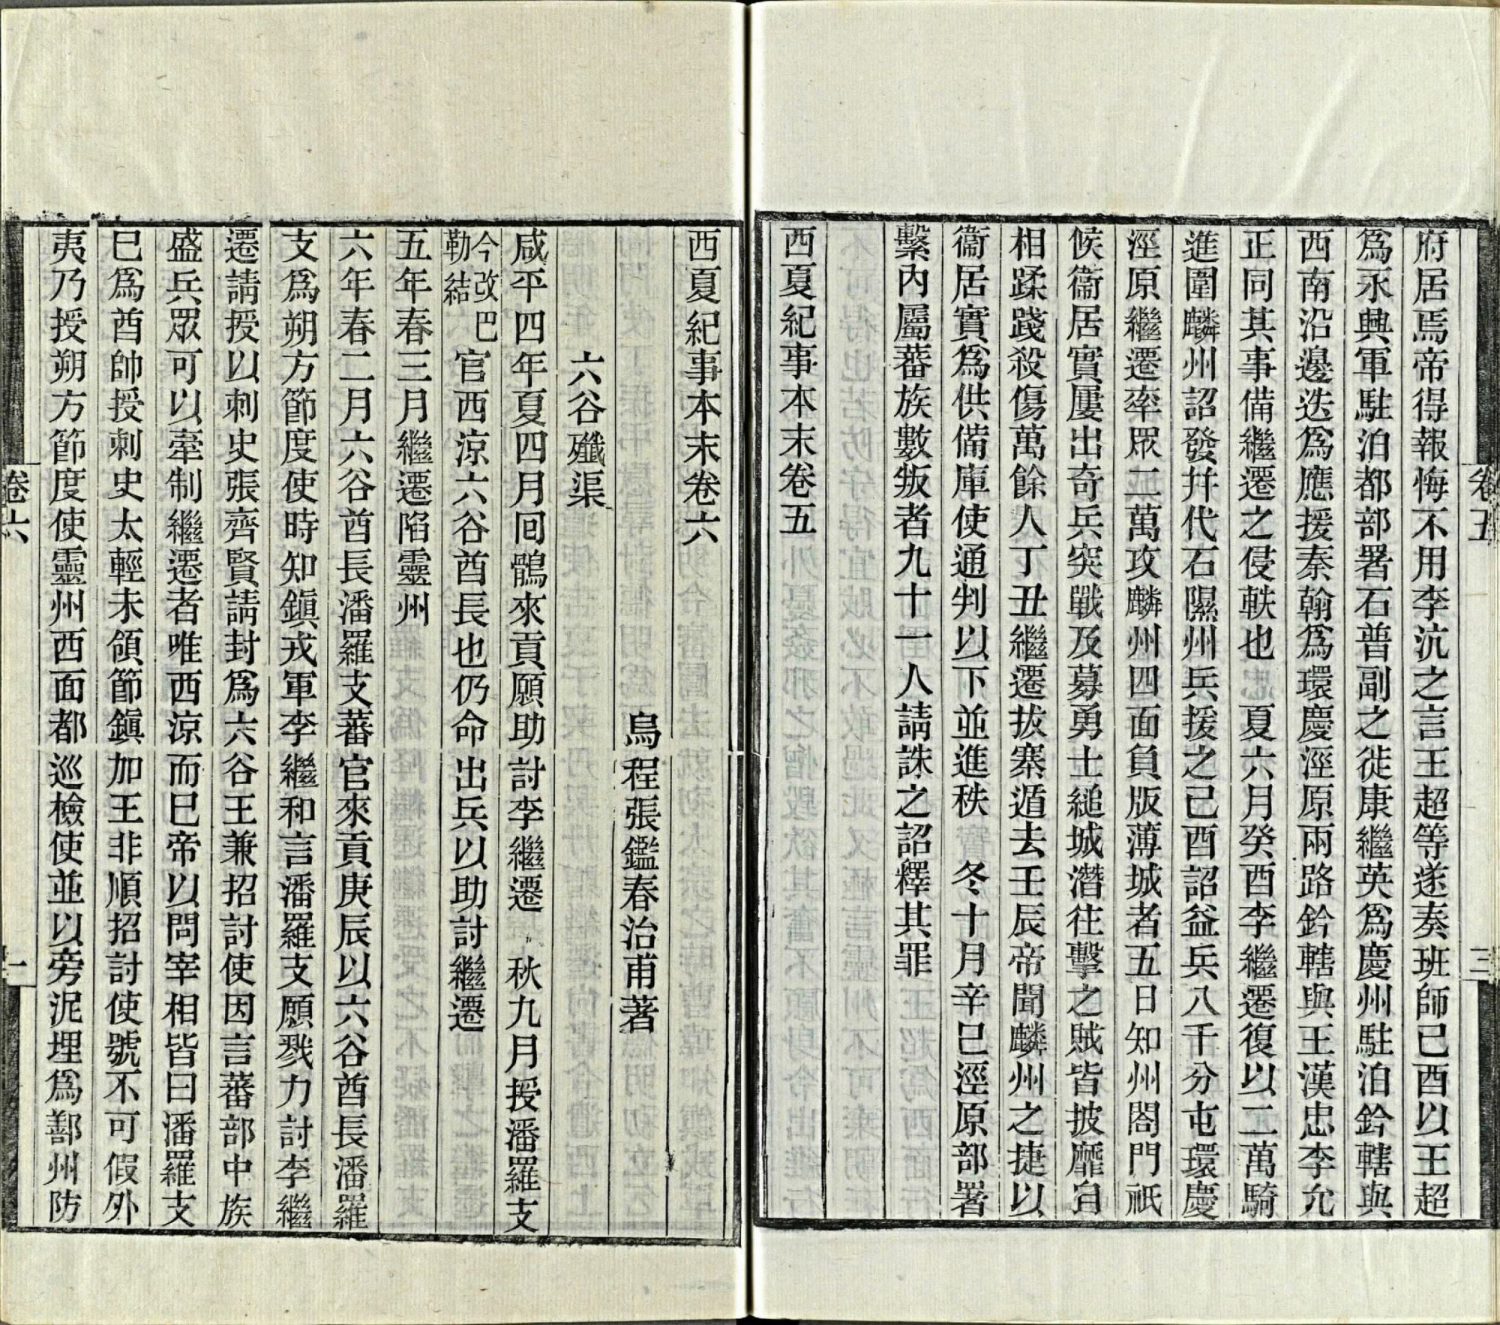 卷五
三
府居焉帝得報悔不用李沆之言王超等遂奏班師己酉以王超
爲永興軍駐泊都部署石普副之徙康繼英爲慶州駐泊鈐轄與
西南沿邊迭爲應援秦翰爲環慶涇原兩路鈐轄與王漢忠李允
正同其事備繼遷之侵軼也　夏六月癸酉李繼遷復以二萬騎
進圍麟州詔發幷代石隰州兵援之己酉詔益兵八千分屯環慶
涇原繼遷率眾二萬攻麟州四面負版薄城者五日知州閤門祇
候衞居實屢出奇兵突戰及募勇士縋城潛往擊之賊皆披靡自
相蹂踐殺傷萬餘人丁丑繼遷拔寨遁去壬辰帝聞麟州之捷以
衞居實爲供備庫使通判以下並進秩　冬十月辛巳涇原部署
繫內屬蕃族數叛者九十一人請誅之詔釋其罪
西夏紀事本末卷五
西夏紀事本末卷六
烏程張鑑春治甫著
六谷殲渠
咸平四年夏四月回鶻來貢願助討李繼遷　秋九月授潘羅支
今改巴
勒結
官西涼六谷酋長也仍命出兵以助討繼遷
五年春三月繼遷陷靈州
六年春二月六谷酋長潘羅支蕃官來貢庚辰以六谷酋長潘羅
支爲朔方節度使時知鎭戎軍李繼和言潘羅支願戮力討李繼
遷請授以刺史張齊賢請封爲六谷王兼招討使因言蕃部中族
盛兵眾可以牽制繼遷者唯西涼而已帝以問宰相皆曰潘羅支
已爲酋帥授刺史太輕未領節鎭加王非順招討使號不可假外
夷乃授朔方節度使靈州西面都巡檢使並以旁泥埋爲鄯州防
卷六
一